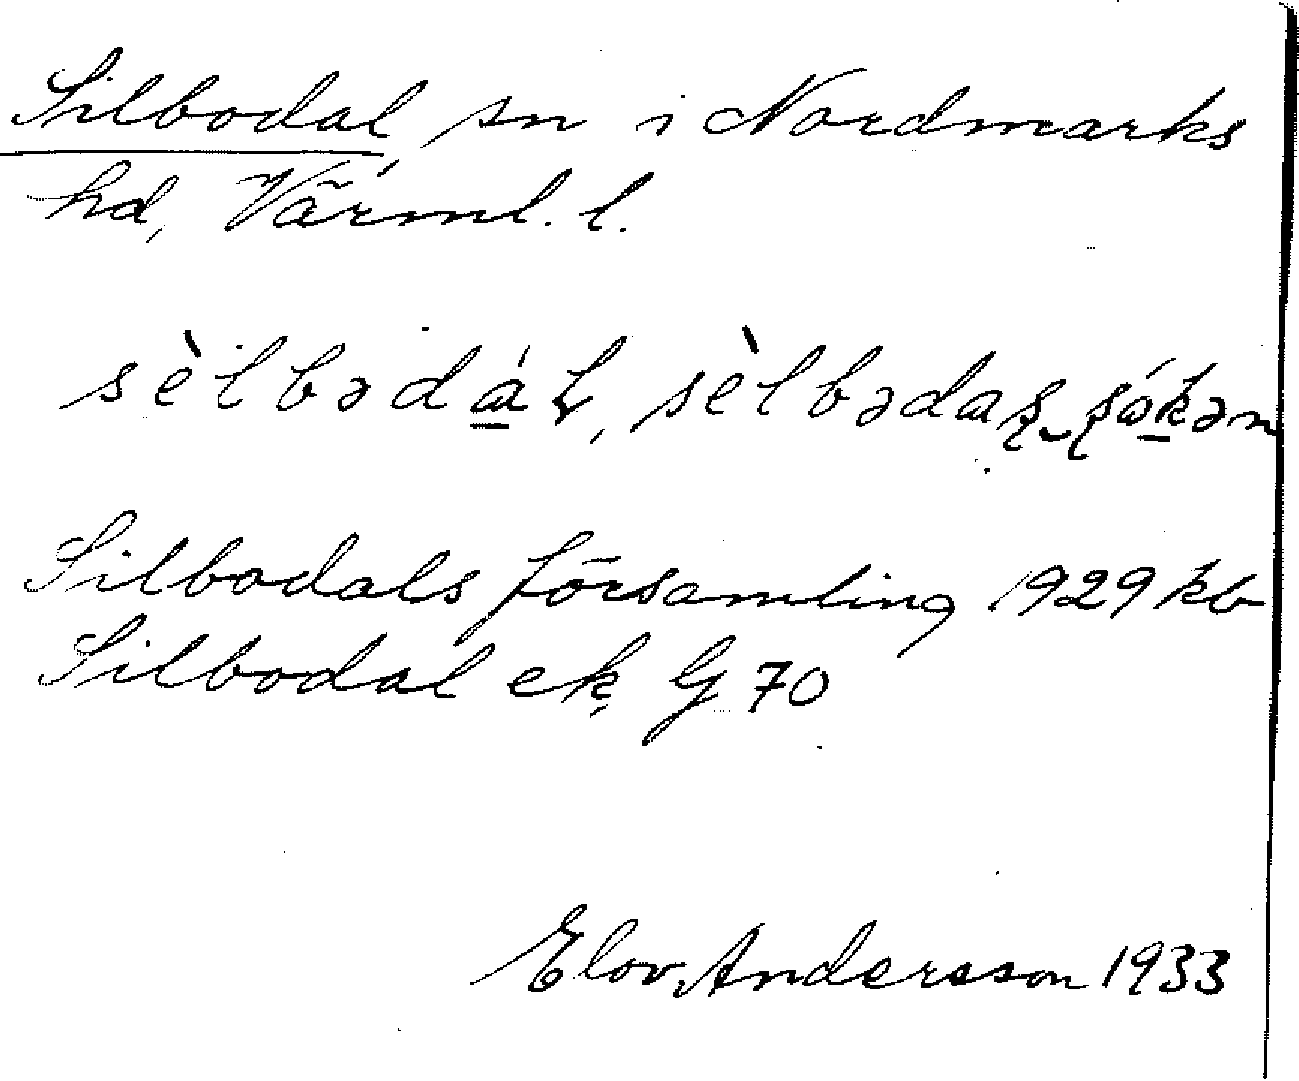 Silbodal, sn i Nordmarks
hd, Värml. l.
sèlbədáł, sèlbədaʂ ʂókən
Silbodals församling 1929 kb
Silbodal ek G 70
Elov Andersson 1933